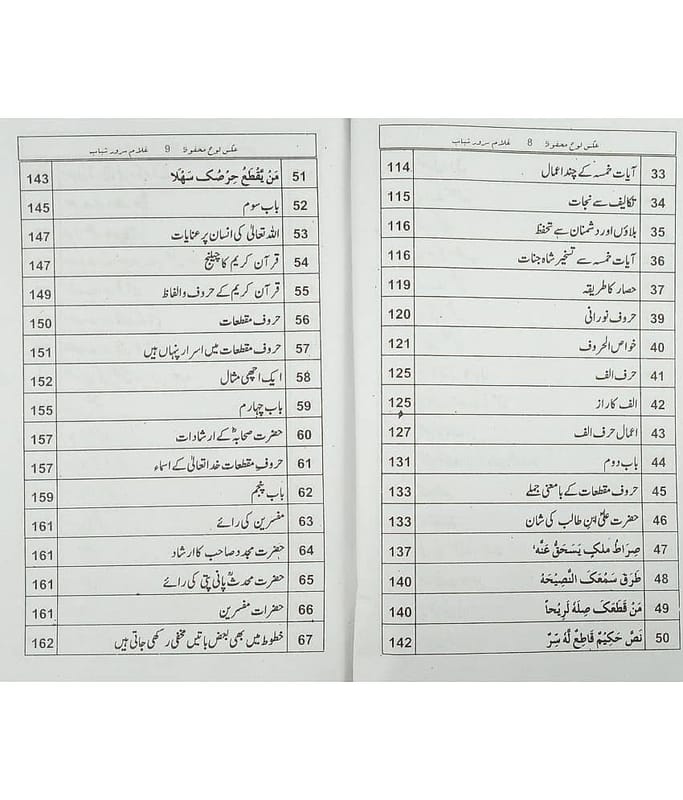 عکس لوح محفوظ 8 غلام سرور شباب
33 آیات خمسہ کے چند اعمال 114
34 تکالیف سے نجات 115
35 بلاؤں اور دشمنان سے تحفظ 116
36 آیات خمسہ سے تسخیر شاہ جنات 116
37 حصار کا طریقہ 119
39 حروف نورانی 120
40 خواص الحروف 121
41 حرف الف 125
42 الف کا راز 125
43 اعمال حرف الف 127
44 باب دوم 131
45 حروف مقطعات کے بامعنی جملے 133
46 حضرت علیؓ ابن طالب کی شان 133
47 صِرَاطُ مَلکٍ یَسحَقُ عَنَّہٗ 137
48 طَرَقَ سَمُعَکَ النَّصِیْحَۃ 140
49 مَنُ قَطَعَکَ صِلۡہُ لَرِیۡحاً 140
50 نَصٌّ حَکِیۡمٌ قَاطِعٌ لَہٗ سِّرٌ 142
عکس لوح محفوظ 9 غلام سرور شباب
51 مَنُ یَّقۡطَعُ حِرۡصُکَ سَھۡلَا 143
52 باب سوم 145
53 اللہ تعالیٰ کی انسان پر عنایات 147
54 قرآن کریم کا چیلنج 147
55 قرآن کریم کے حروف والفاظ 149
56 حروف مقطعات 150
57 حروف مقطعات میں اسرار پنہاں ہیں 151
58 ایک اچھی مثال 152
59 باب چہارم 155
60 حضرت صحابہؓ کے ارشادات 157
61 حروف مقطعات خدا تعالیٰ کے اسماء 157
62 باب پنجم 159
63 مفسرین کی رائے 161
64 حضرت مجدد صاحب کا ارشاد 161
65 حضرت محدثؒ پانی پتی کی رائے 161
66 حضرات مفسرین 161
67 خطوط میں بھی بعض باتیں مخفی رکھی جاتی ہیں 162